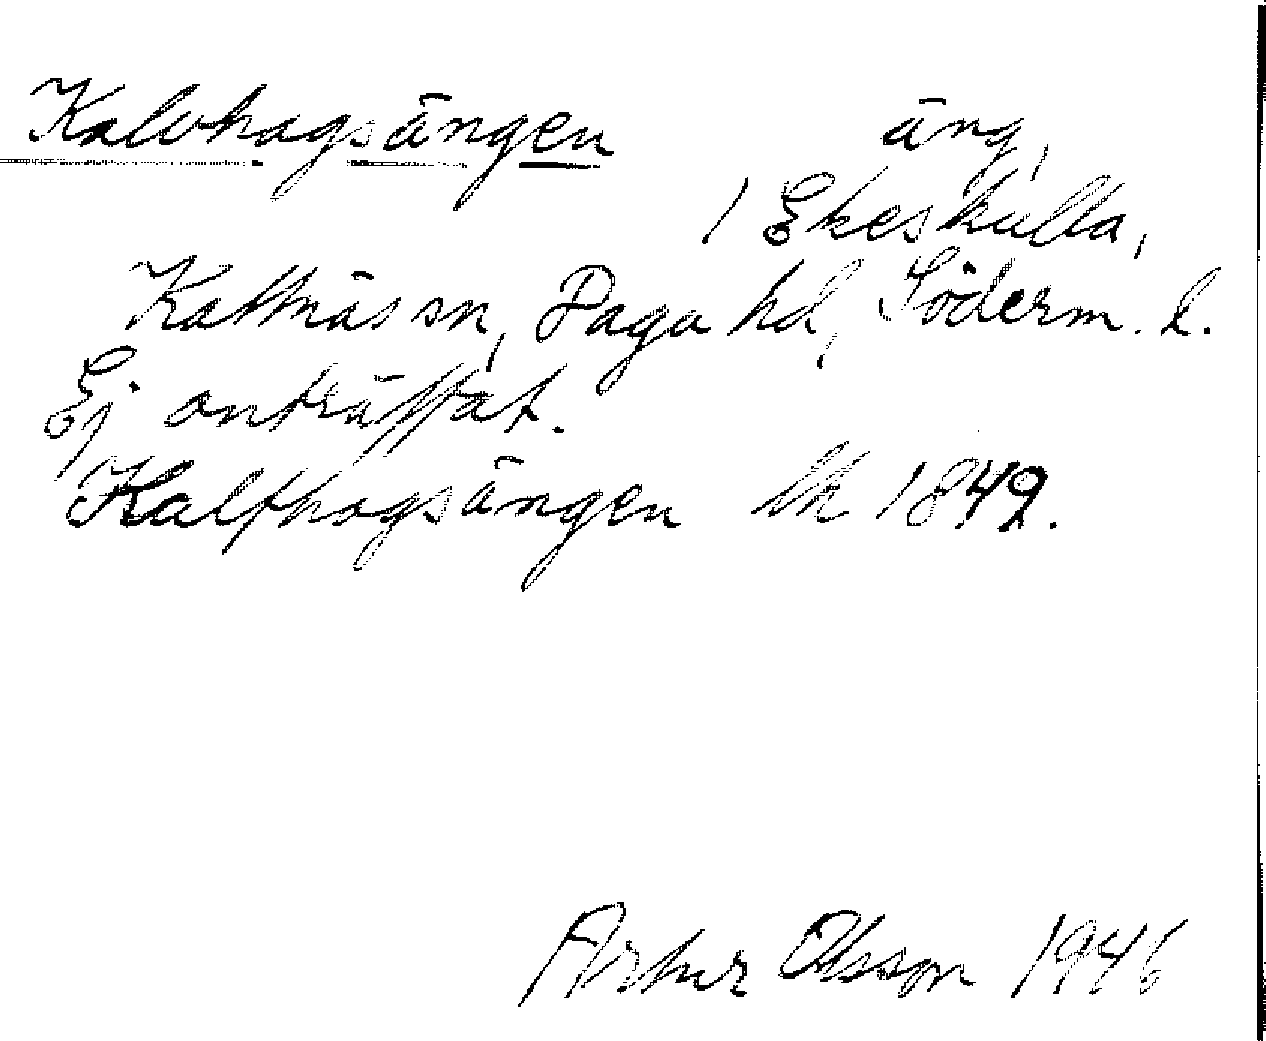 Kalvhagsängen äng,
1 Ekeskulla,
Kattnäs sn, Daga hd, Söderm. l.
Ej anträffat.
Kalfhagsängen lk 1842.
Artur Olsson 1946